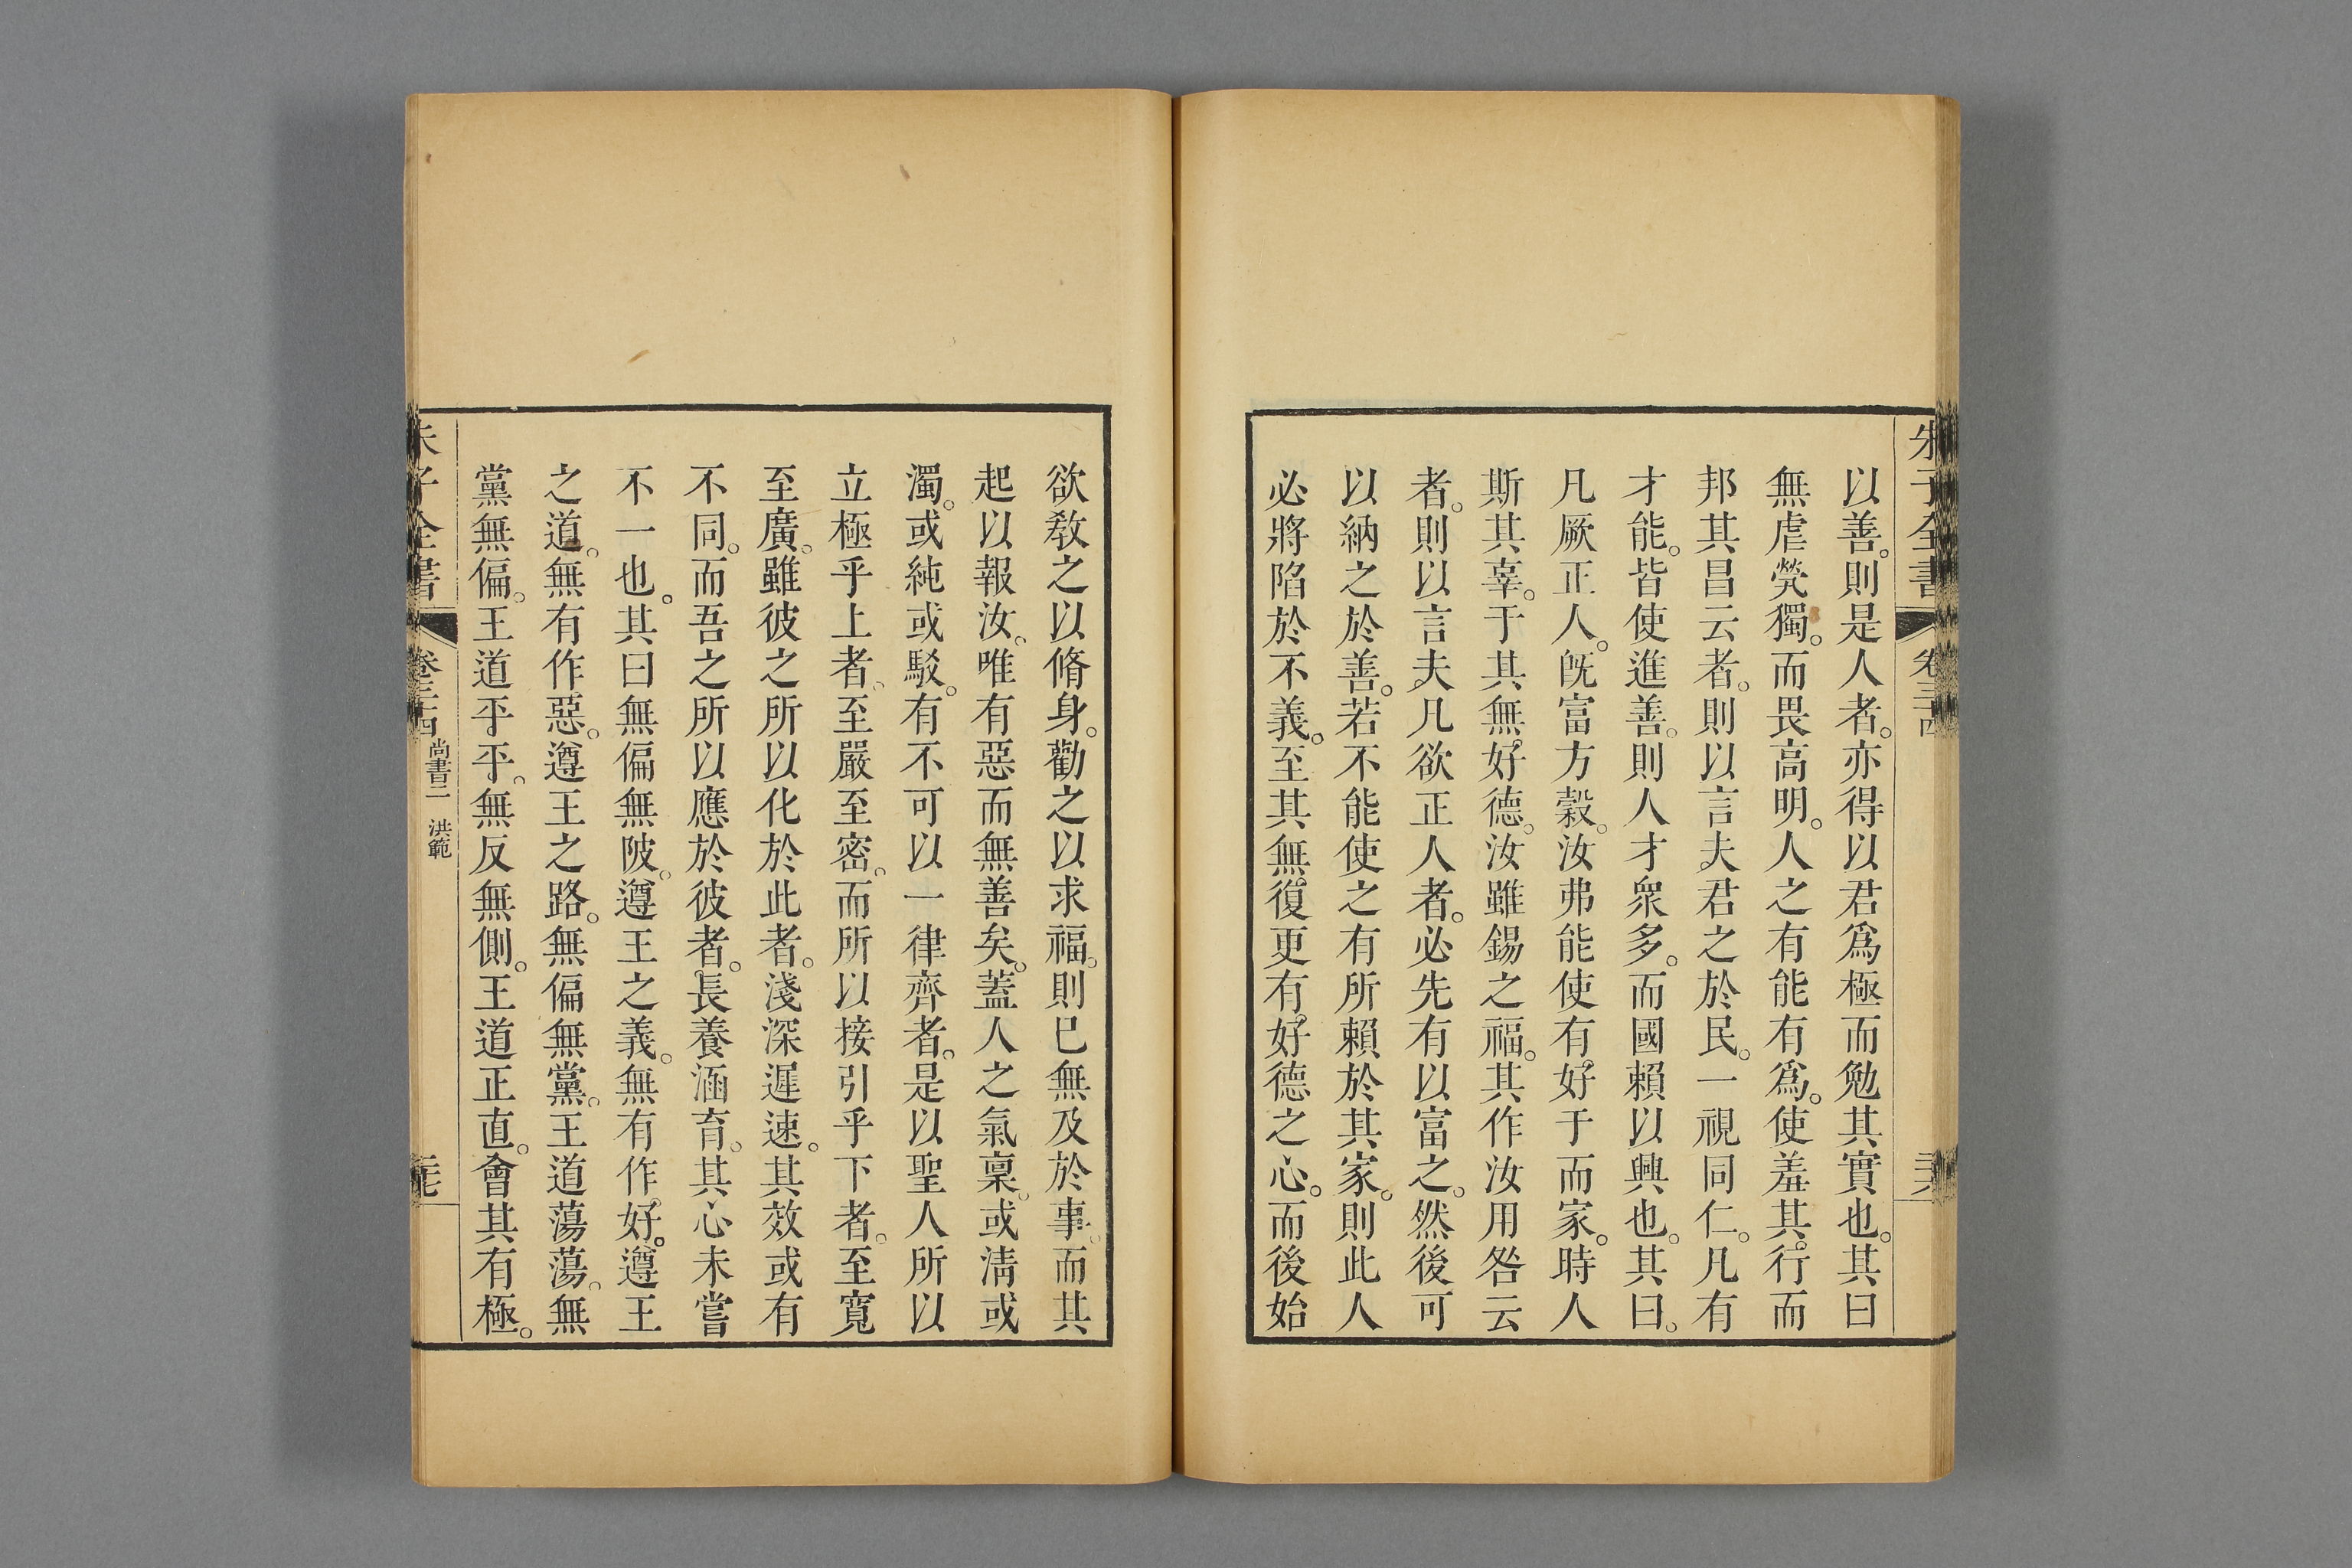 朱子全書 卷三十四
以善。則是人者。亦得以君爲極而勉其實也。其曰
無虐煢獨。而畏高明。人之有能有爲。使羞其行而
邦其昌云者。則以言夫君之於民。一視同仁。凡有
才能。皆使進善。則人才衆多。而國賴以興也。其曰。
凡厥正人。旣富方穀。汝弗能使有好于而家。時人
斯其辜。于其無好德。汝雖錫之福。其作汝用咎云
者。則以言夫凡欲正人者。必先有以富之。然後可
以納之於善。若不能使之有所賴於其家。則此人
必將陷於不義。至其無復更有好德之心。而後始
欲敎之以脩身。勸之以求福。則已無及於事。而其
起以報汝。唯有惡而無善矣。蓋人之氣稟。或淸或
濁。或純或駁。有不可以一律齊者。是以聖人所以
立極乎上者。至嚴至密。而所以接引乎下者。至寬
至廣。雖彼之所以化於此者。淺深遲速。其效或有
不同。而吾之所以應於彼者。長養涵育。其心未嘗
不一也。其曰無偏無陂。遵王之義。無有作好。遵王
之道。無有作惡。遵王之路。無偏無黨。王道蕩蕩。無
黨無偏。王道平平。無反無側。王道正直。會其有極。
朱子全書 卷三十四 尚書二 洪範